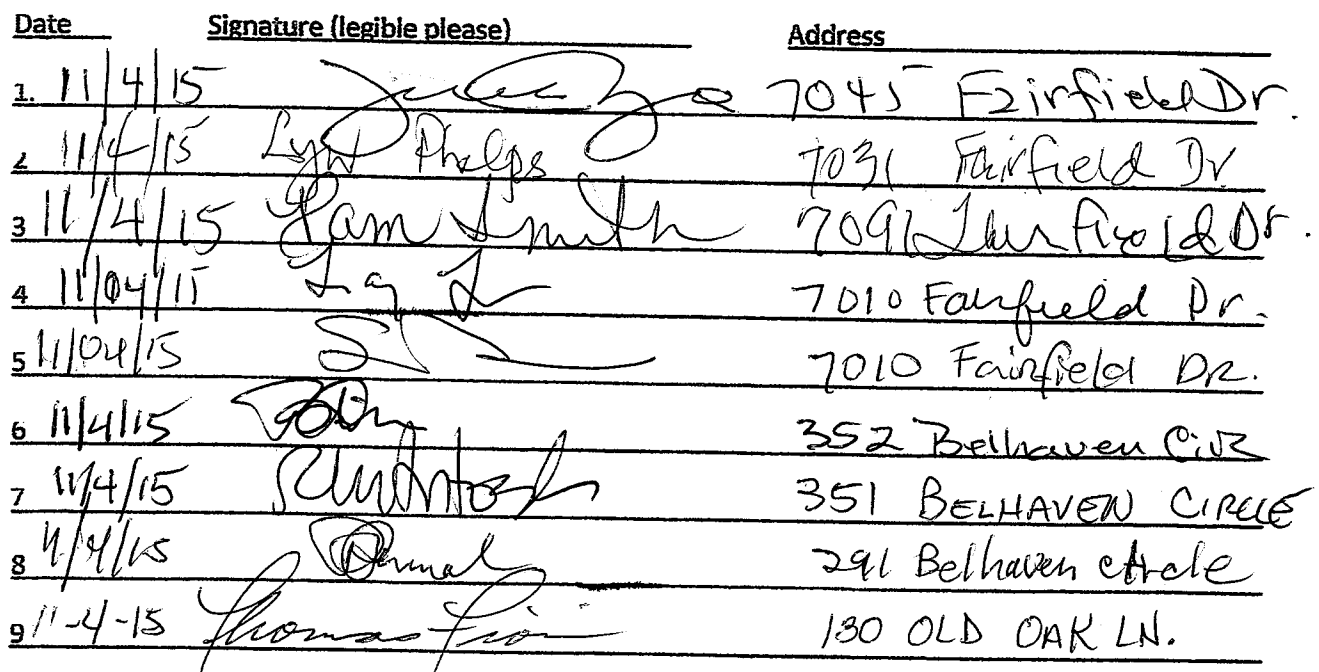 Date Signature (legible please) Address
1. 11/4/15 7045 Fairfield Dr.
2 11/4/15 Lynn Phelps 7031 Fairfield Dr
3 11/4/15 Pam Smith 7091 Fairfield Dr.
4 11/04/15 7010 Fairfield Dr.
5 11/04/15 7010 Fairfield DR.
6 11/4/15 352 Belhaven Circ
7 11/4/15 351 BELHAVEN CIRCLE
8 11/4/15 291 Belhaven circle
9 11-4-15 Thomas 130 OLD OAK LN.